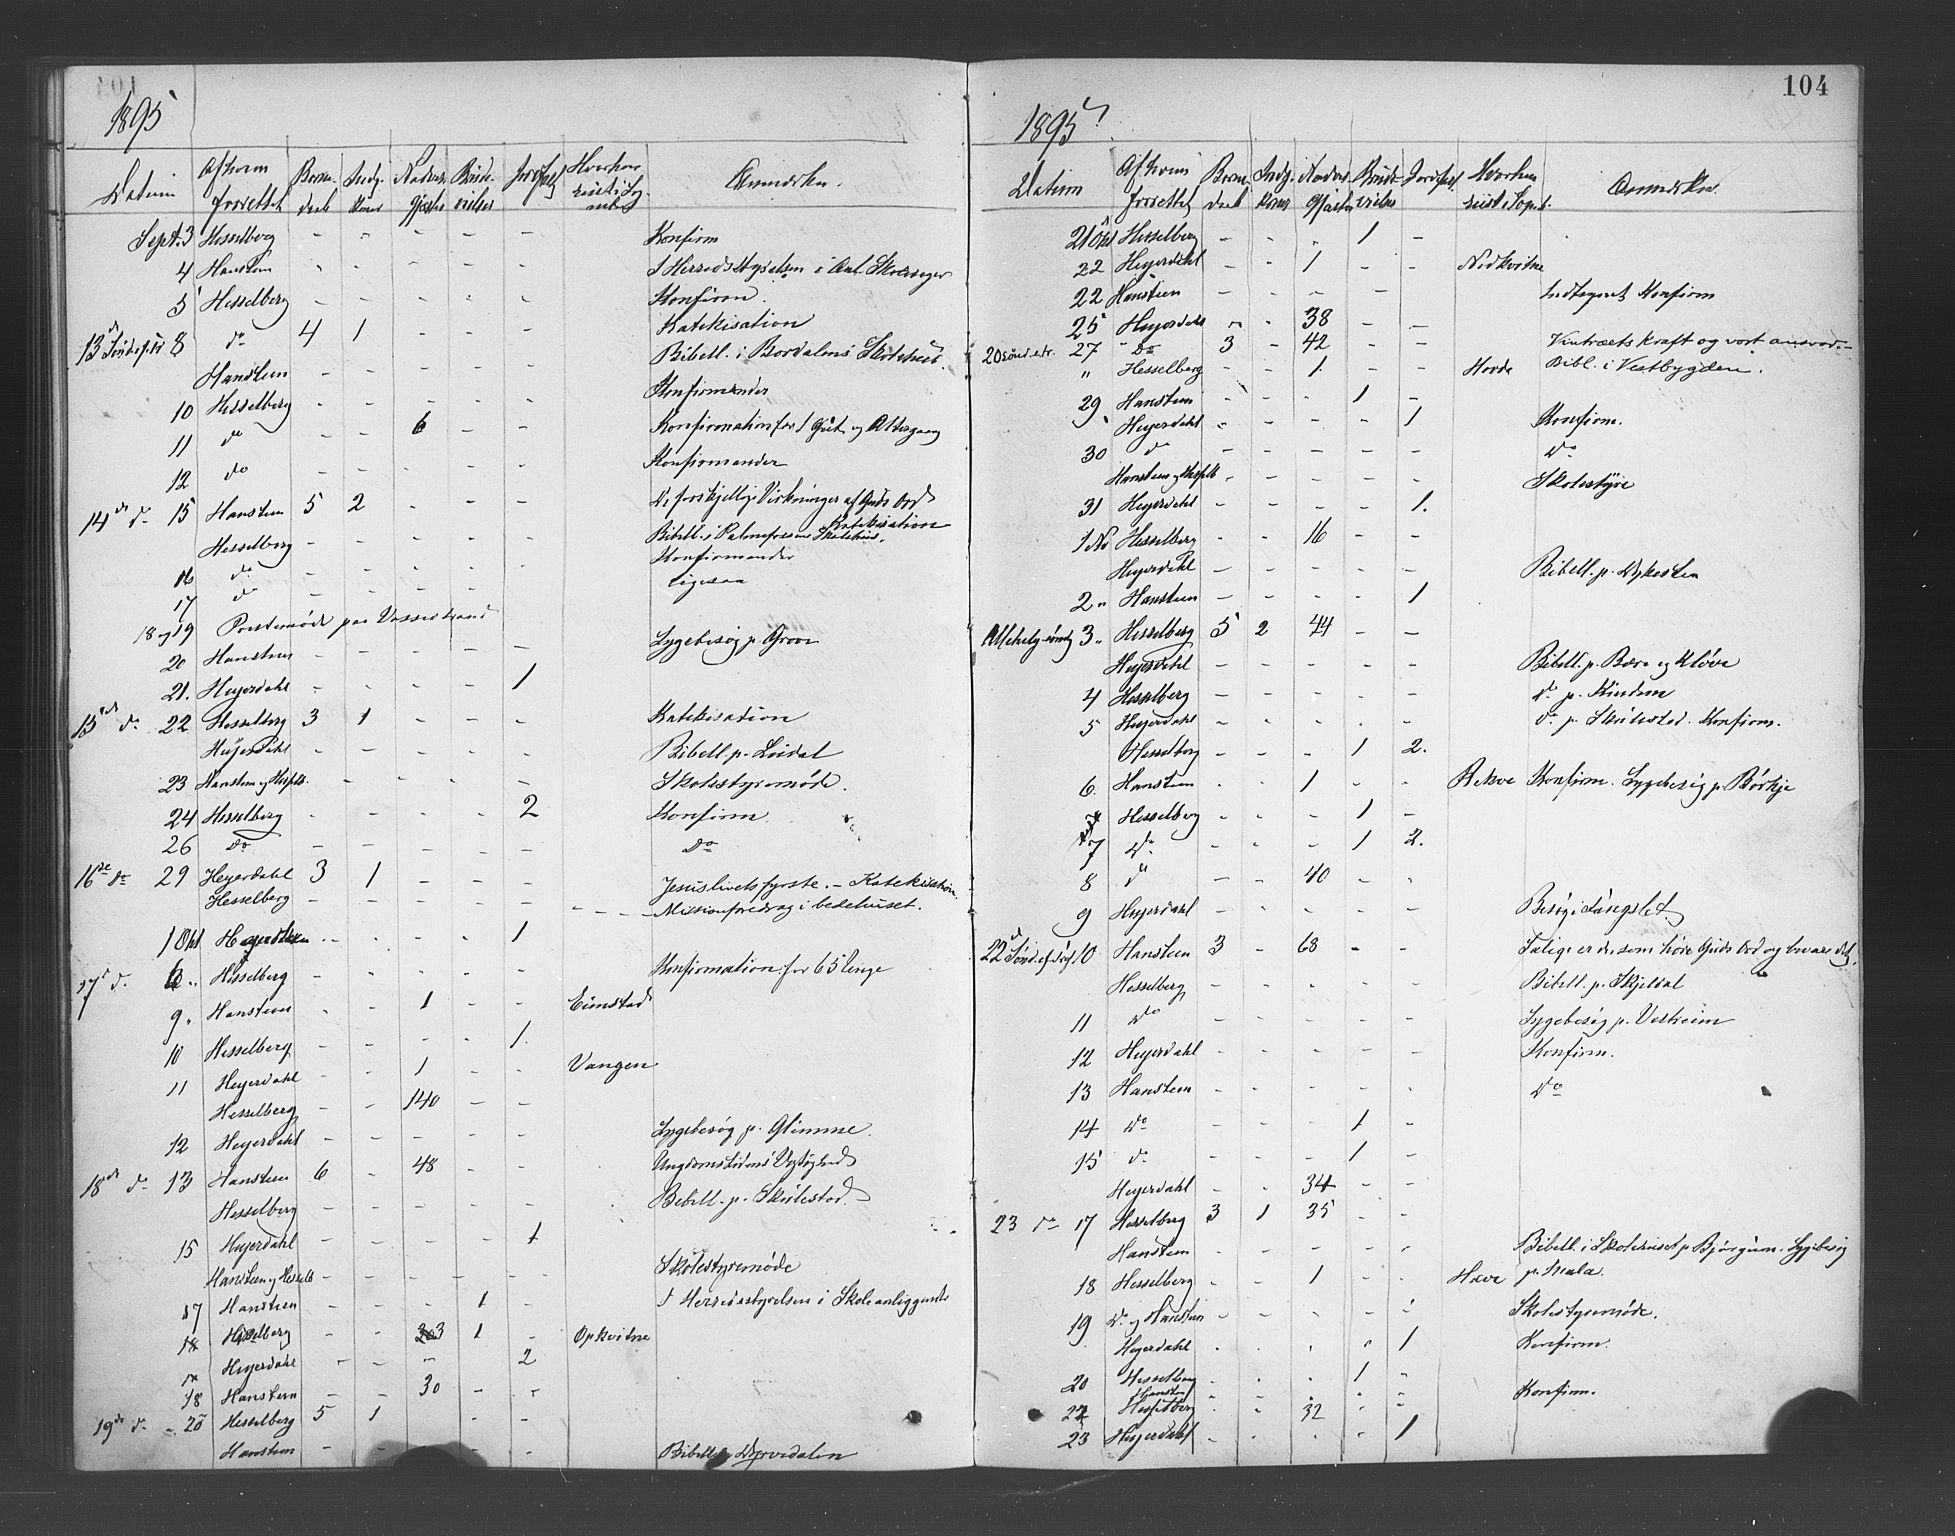 1895
Datum Af hvem forrettet Barne-daab Indg. Koner Nadver-Gjæster Brude-vielser Jordfæst Hvorhen reist i Sog-nebud Anmærkn.
Sept. 3 Hesselberg - - - - - Konfirm
4 Hansteen - - - - - I Herredsstyrelsen i Anl. Skolesager
5 Hesselberg - - - - - Konfirm.
13d Sönd e fr 8 do 4 1 - - - Katekisation
Hansteen - - - - - Bibell. i Bordalens Skolehus.
10 Hesselberg - - - - - Konfirmander
11 do - - 6 - - Konfirmation for 1 Gut og Altergang
12 do - - - - - Konfirmander
14de do 15 Hansteen 5 2 - - - De forskjellige Virkninger af Guds Ord Katekisation
Hesselberg - - - - - Bibell. i Palmafossens Skolehus.
16 do - - - - - Konfirmander
17 do - - - - - Ligesaa
18 og 19 Prestemöde paa Vossestrand
20 Hansteen - - - - - Sygebesög p. Groen
21. Heyerdahl - - - - 1
15de do 22 Hesselberg 3 1 - - - Katekisation
Heyerdahl - - - - - Bibell. p. Lidal
23 Hansteen og Hesselb. - - - - Skolestyremöde.
24 Hesselberg - - - - 2 Konfirm
26 do - - - - - Do
16de do 29 Heyerdahl 3 1 - - - Jesus livets fyrste. - Katekisation
Hesselberg - - - - - - - - - Missionsforedrag i bedehuset.
1 Okt Heyerdahl - - - - 1
17d d. 6 " Hesselberg - - - - - Konfirmation for 65 Unge
9 " Hansteen - - 1 - - Eimstad
10 Hesselberg - - - - 1.
11 Heyerdahl - - 1 - - Vangen
Hesselberg - - 140 - -
12 Heyerdahl - - - - - Sygebesög p. Glimme.
18de do 13 Hansteen 6 - 48 - - Ungdomstidens Vigtighed
Hesselberg - - - - - Bibell. p. Skulestad.
15 Heyerdahl - - - - 1
Hansteen og Hesselb - - - - - Skolestyremöde
17 Hansteen - - - 1 - I Herredsstyrelsen i Skoleanliggende
18 Hesselberg - - 3 1 - Opkvitne
Heyerdahl - - - 2
18 Hansteen - - 30 - -
19de d. - 20 Hesselberg 5 1 - -
Hansteen - - - - Bibell. p Dyrvedalen
104
1895
Datum Af hvem forrettet Barne-daab Indg. Koner Nadver Gjæster Brude vielser Jordfæst Hvorhen reist i Sognb. Anmærkn.
21 Okt Hesselberg - - - 1 -
22 Heyerdahl - - 1 - - Nedkvitne
22 Hansteen - - - - Indtegnet Konfirm
25 Heyerdahl - - 38 - -
20 sönd.e.tr. 27 Do 3 - 42 - - Vintræets kraft og vort ansvar. -
" Hesselberg - - 1. - - Horde Bibl. i Vestbygden.
29 Hansteen - - - 1 -
" Heyerdahl - - - - 1 Konfirm.
30 do - - - - - Do
Hansteen og Hesselb - - - - Skolestyre
31 Heyerdahl - - - - 1.
1 No Hesselberg - - 16 - -
Heyerdahl - - - - - Bibell. p. Dykesten
2 " Hansteen - - - - 1
Allehelg. sönd 3 " Hesselberg 5 2 44 - -
Heyerdahl - - - - - Bibell. p. Bære og Klöve
4 Hesselberg - - - - - do p. Kindem
5 Heyerdahl - - - - - do p. Skulestad. Konfirm.
Hesselberg - - - 1 2.
6. Hansteen - - 1 - - Rekve Konfirm. Sygebesög p. Börkje
Hesselberg - - - 1 -
7 Do - - - 1 2.
8 do - - 40 - -
9 Heyerdahl - - - - - Besög i Fængslet
22d Sönd. ef. Tref. 10 Hansteen 3 - 68 - - Salige er de, som höre Guds Ord og bevare det.
Hesselberg - - - - - Bibell. p. Skjeldal
11 Do - - - - - Sygebesög p. Vestreim
12 Heyerdahl - - - - - Konfirm.
13 Hansteen - - - - - Do
14 Do - - - 1 -
15 do - - - 1 -
Heyerdahl - - 34 - -
23 do 17 Hesselberg 3 1 35 - -
Hansteen - - - - - Bibell. i Skolehuset p Bjørgum. Sygebesög
18 Hesselberg - - 1 - - Hæve p. Mala.
19 Do og Hansteen - - - - - Skolestyremöde.
Heyerdahl - - - - 1 Konfirm.
20 Hesselberg - - - 1 -
Hansteen - - - - - Konfirm.
22 Hesselberg - - 32 - -
23 Heyerdahl - - - - 1